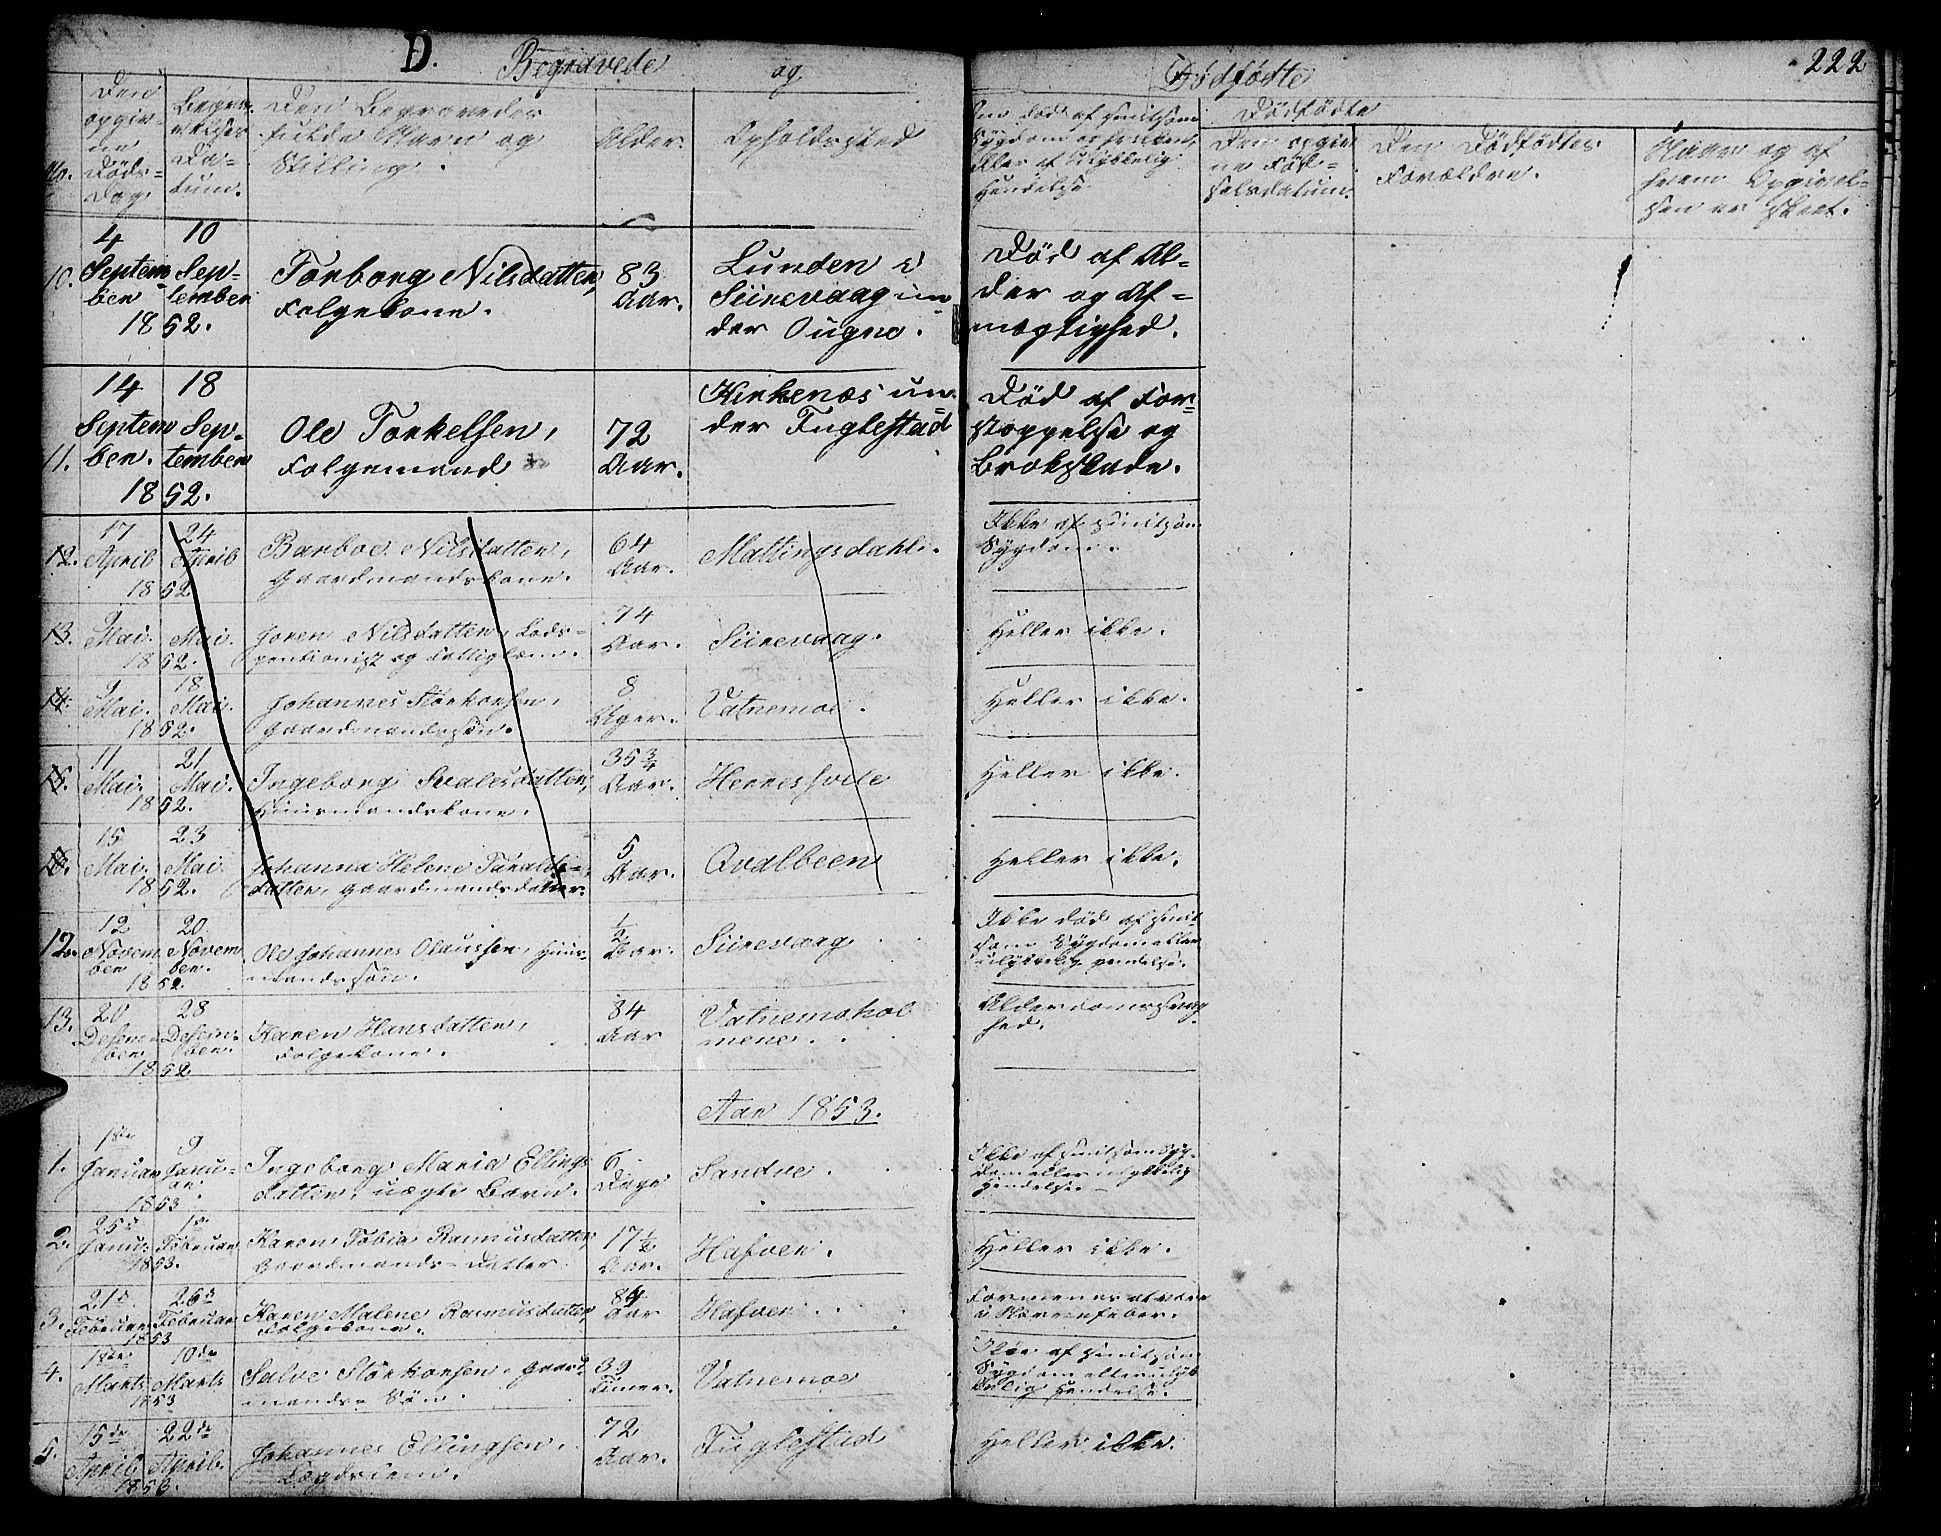 D. Begravede og Dödfödte 222
No.
Den opgivne Döds-Dag.
Begravelses Datum.
Den Begravedes fulde Navn og Stilling.
Alder.
Opholdssted
Om död af smitsom Sygdom og hvilken, eller af Ulykkelig Hendelse
Dödfödte
Den opgivne Födselsdatum.
Den Dödfödtes Forældre.
Naar og af hvem Opgivelsen er skeet.
10. 4 September 1852. 10 September Torborg Nilsdatter, Folgekone. 83 Aar. Lunden i Siirevaag under Ougna. Död af Alder og Afmægtighed.
11. 14 September. 1852. 18 September Ole Torkelsen, Folgemand 72 Aar. Kirkenæs under Fuglestad Död af Forstoppelse og Brokskade.
12. 17 April 1852 24 April Barboe Nilsdatter, Gaardmandskone. 64 Aar. Mattingsdahl. Ikke af smitsom Sygdom.
13. 9 Mai. 1852. Mai. Joren Nilsdatter, Lods-pentionist og Fattiglem. 74 Aar. Siirevaag. Heller ikke.
14. 9 Mai. 1852. 18 Mai. Johannes Störkorsen, Gaardmandssön. 8 Uger. Vatnemoe. Heller ikke.
15. 11 Mai. 1852. 21 Mai. Ingeborg Svalesdatter, Huusmandskone. 35 3/4 Aar. Hennesfvele Heller ikke.
16. 15 Mai. 1852. 23 Mai Johanna Helene Taraldsdatter, Gaardmandsdatter. 5 Aar. Qvalbeen Heller ikke.
12. 12 November 1852. 20 November. Ole Johannes Olaussen, Huusmandssön. 1/2 Aar. Siirevaag Ikke död af smitsom Sygdom eller ulykkelig Hendelse.
13. 20 Desember 1852 28 Desember. Karen Hansdatter, Folgekone. 84 Aar Vatnemoholmene. Alderdomssvaghed.
Aar 1853.
1. 1ste Januar 1853 9 Januar. Ingeborg Maria Ellingsdatter, uægte Barn. 6 Dage Sandve. Ikke af smitsom Sygdom eller ulykkelig Hendelse.
2. 25de Janu: 1853. 1ste Februar Karen Tobia Rasmusdatter, Gaardmands-Datter 17 1/2 Aar. Hafven. Heller ikke.
3. 21de Februar 1853 26de Februar Karen Malene Rasmusdatter, Folgekone. 84 Aar Hafven. Formenes at være i Nervefeber.
4. 1ste Marts 1853 10de Marts Salve Störkorsen, Gaardmands Sön. 39 Timer. Vatnemoe Ikke af smitsom Sygdom eller ulykkelig Hendelse.
5. 15de April 1853. 22de April. Johannes Ellingsen, Lægdslem. 72 Aar. Fuglestad Heller ikke.